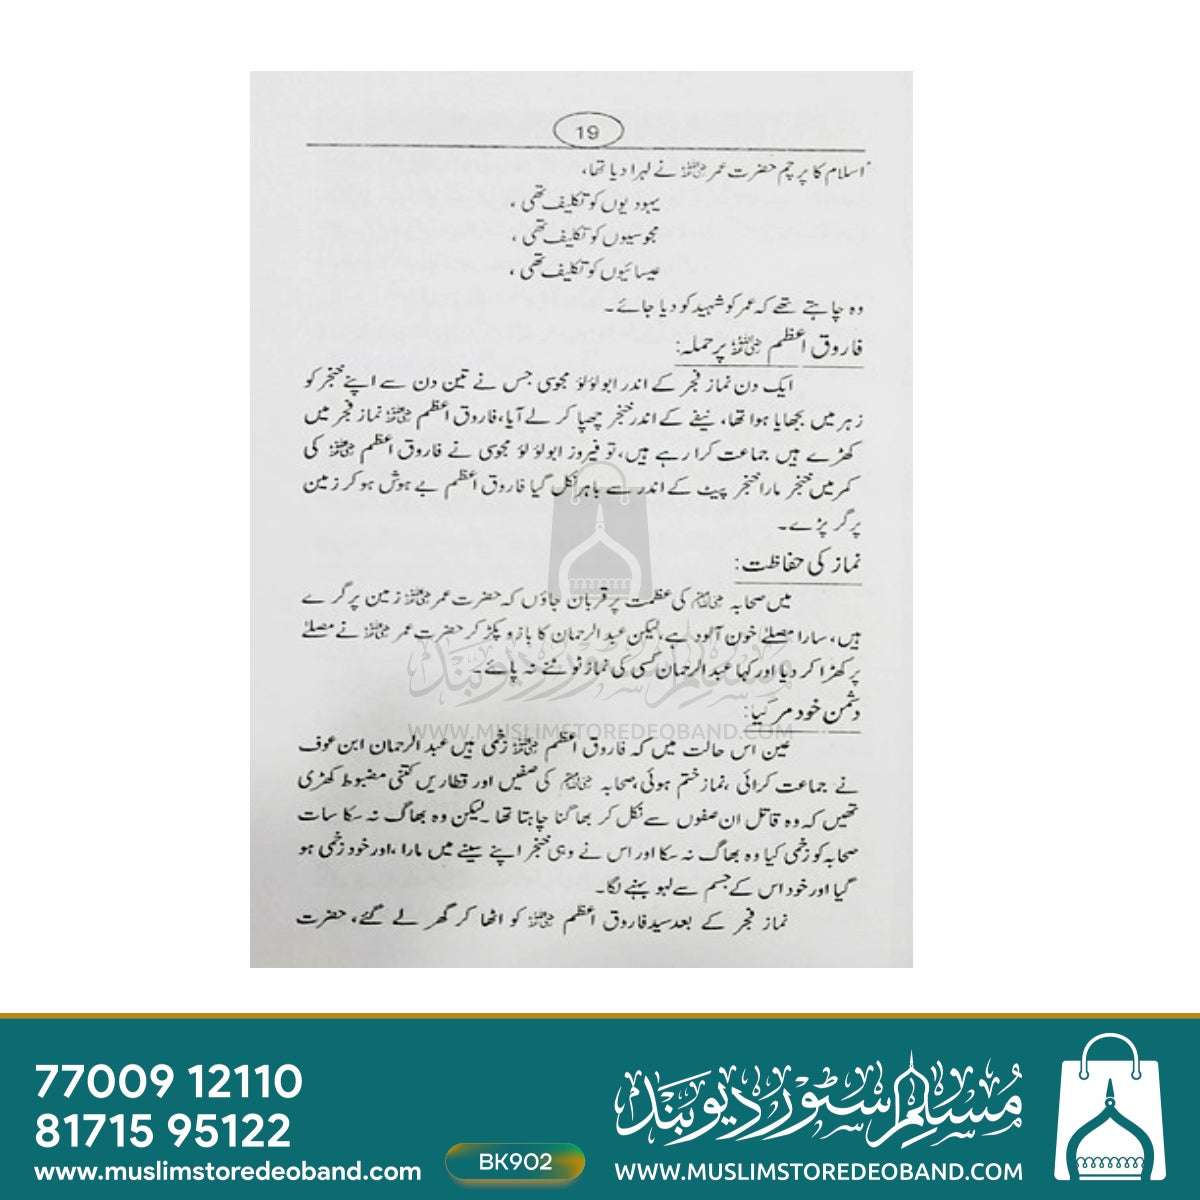 19
اسلام کا پرچم حضرت عمر رضی اللہ عنہ نے لہرا دیا تھا،
یہودیوں کو تکلیف تھی،
مجوسیوں کو تکلیف تھی،
عیسائیوں کو تکلیف تھی،
وہ چاہتے تھے کہ عمر کو شہید کو دیا جائے۔
فاروق اعظم رضی اللہ عنہ پر حملہ:
ایک دن نماز فجر کے اندر ابو لؤلؤ مجوسی جس نے تین دن سے اپنے خنجر کو
زہر میں بجھایا ہوا تھا، نیفے کے اندر خنجر چھپا کر لے آیا، فاروق اعظم رضی اللہ عنہ نماز فجر میں
کھڑے ہیں جماعت کرا رہے ہیں، تو فیروز ابو لؤلؤ مجوسی نے فاروق اعظم رضی اللہ عنہ کی
کمر میں خنجر مارا خنجر پیٹ کے اندر سے باہر نکل گیا فاروق اعظم بے ہوش ہو کر زمین
پر گر پڑے۔
نماز کی حفاظت:
میں صحابہ رضی اللہ عنہم کی عظمت پر قربان جاؤں کہ حضرت عمر رضی اللہ عنہ زمین پر گرے
ہیں، سارا مصلےٰ خون آلود ہے، لیکن عبد الرحمان کا بازو پکڑ کر حضرت عمر رضی اللہ عنہ نے مصلےٰ
پر کھڑا کر دیا اور کہا عبد الرحمان کسی کی نماز ٹوٹنے نہ پائے۔
دشمن خود مر گیا:
عین اس حالت میں کہ فاروق اعظم رضی اللہ عنہ زخمی ہیں عبد الرحمان ابن عوف
نے جماعت کرائی، نماز ختم ہوئی، صحابہ رضی اللہ عنہم کی صفیں اور قطاریں کتنی مضبوط کھڑی
تھیں کہ وہ قاتل ان صفوں سے نکل کر بھاگنا چاہتا تھا۔ لیکن وہ بھاگ نہ سکا سات
صحابہ کو زخمی کیا وہ بھاگ نہ سکا اور اس نے وہی خنجر اپنے سینے میں مارا، اور خود زخمی ہو
گیا اور خود اس کے جسم سے لہو بہنے لگا۔
نماز فجر کے بعد سید فاروق اعظم رضی اللہ عنہ کو اٹھا کر گھر لے گئے، حضرت
مسلم سٹور دیوبند
WWW.MUSLIMSTOREDEOBAND.COM
77009 12110
81715 95122
www.muslimstoredeoband.com
BK902
مسلم سٹور دیوبند
WWW.MUSLIMSTOREDEOBAND.COM